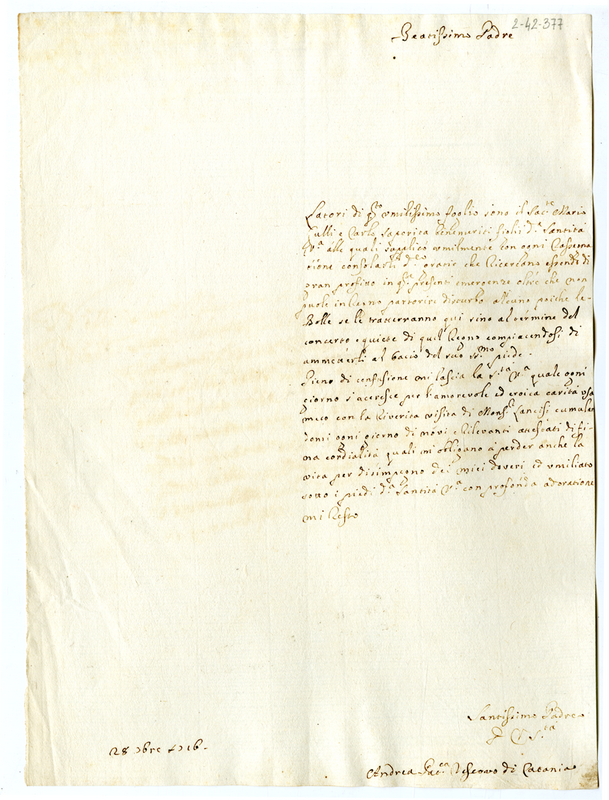 2-42-377
Beatissimo Padre
Latori di q.to umilissimo foglio sono il Sac.te Mario
Cutli e Carlo benemeriti figli di Santità
V.ra alle quali supplico umilmente con ogni
consolarli gratie che
gran profitto in q.ti presenti emergenze oltre che non
puole in Regno partorire disturbo alcuno poiche le
Bolle se le tratterranno qui sino al termine del
concerto e quiete di quel Regno compiacendosi di
ammetterli al bacio del suo SS.mo piede.
Pieno di confusione mi lascia la S.tà V.ra quale ogni
giorno s'accresce per l'amorevole ed eroica carità usa
meco con la riverita visita di Mons.r Lancisi cumulan
domi ogni giorno di novi e rilevanti attestati di fi-
na cordialità quali mi obligano à perder anche la
vita per disimpegno de i miei doveri ed umiliato
sotto i piedi di Santità V.ra con profonda adoratione
mi resto
Santissimo Padre
D. V. S.tà
28 9bre 1716.
Andrea Vescovo di Catania